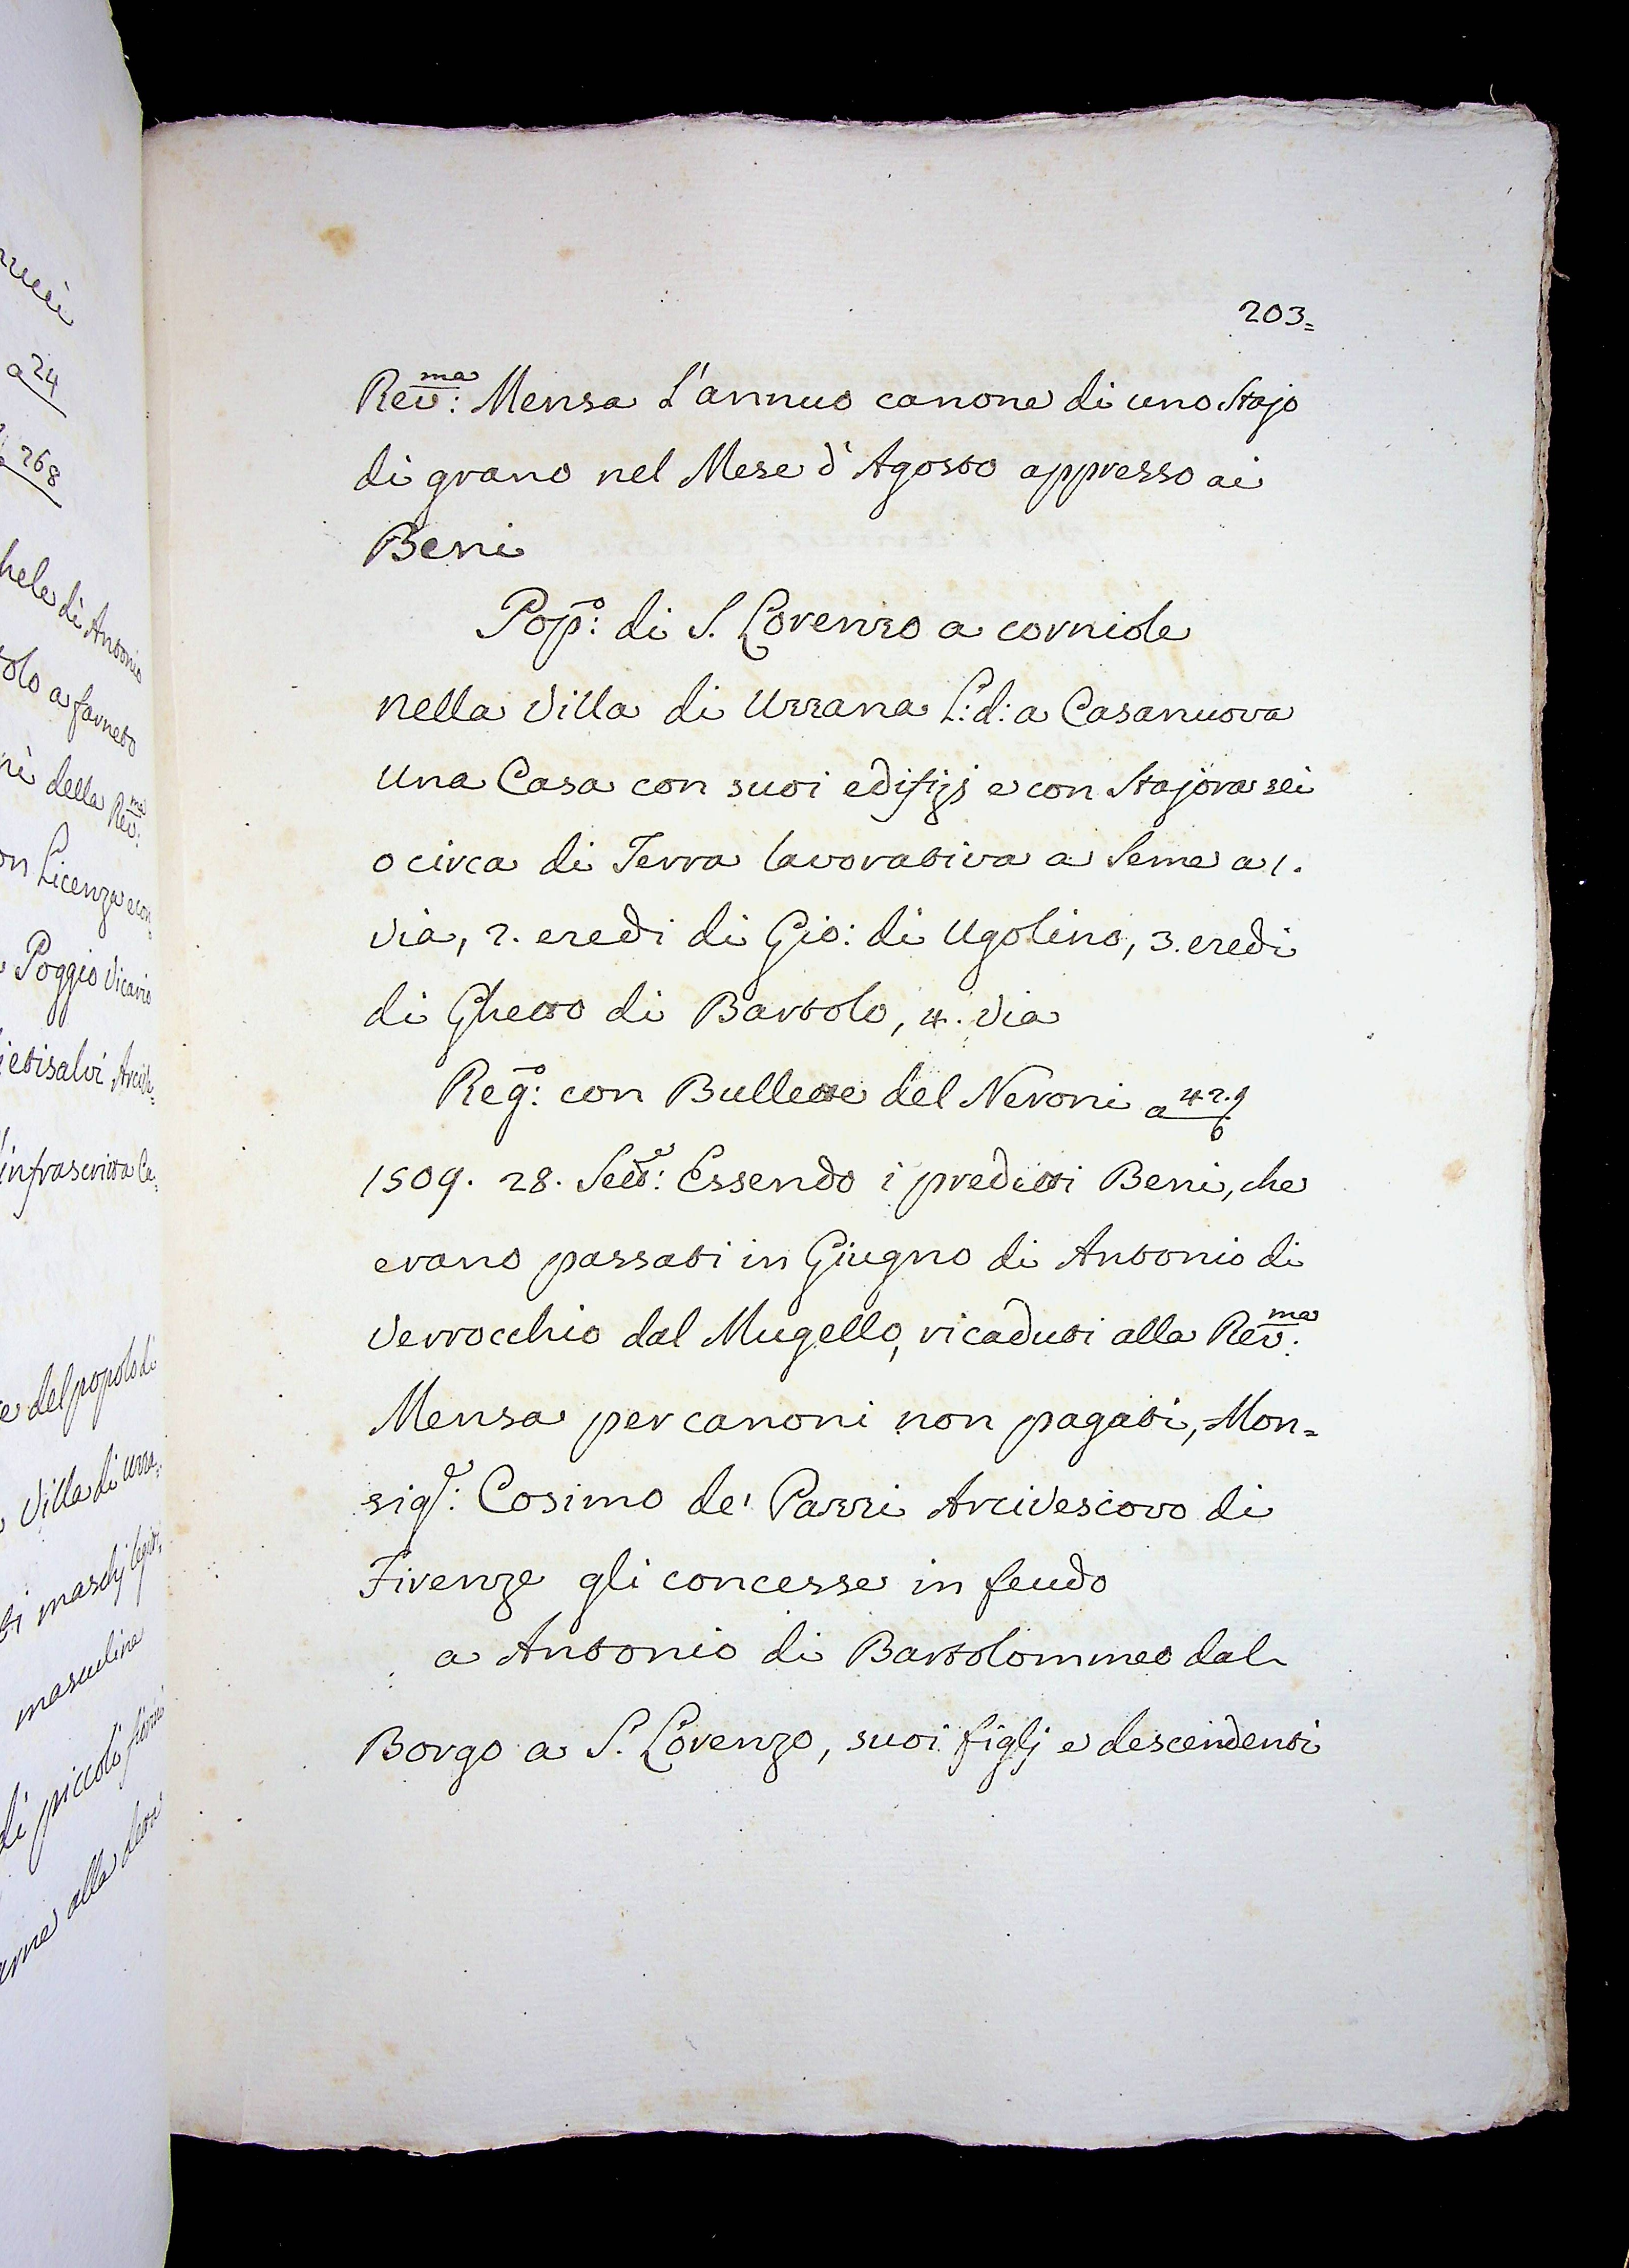 203=
Rev:ma Mensa l'annuo canone di uno Stajo
di grano nel Mese d'Agosto appresso ai
Beni
Pop:o di S. Lorenzo a corniole
nella Villa di Uzzana L: d: a Casanuova
una Casa con suoi edifizj e con Stajora sei
o circa di Terra lavorativa a Seme a 1.
via, 2. eredi di Gio: di Ugolino, 3. eredi
di Ghetto di Bartolo, 4. via
Reg:o con Bullette del Neroni a
1509. 28. Sett:e Essendo i predetti Beni, che
erano passati in Giugno di Antonio di
Verrocchio dal Mugello, ricaduti alla Rev:ma
Mensa per canoni non pagati, Mon=
sig:e Cosimo de' Pazzi Arcivescovo di
Firenze gli concesse in feudo
a Antonio di Bartolommeo dal
Borgo a S. Lorenzo, suoi figlj e descendenti
a 24
268
hele di Antonio
olo a farneto
della Rev:ma
on Licenza e con=
Poggio Vicario
ietisalvi Arciv=
infrascritta Ca=
e del popolo di
Villa di Uzza=
ti maschj legit=
masculina
di piccoli fiorini
alla